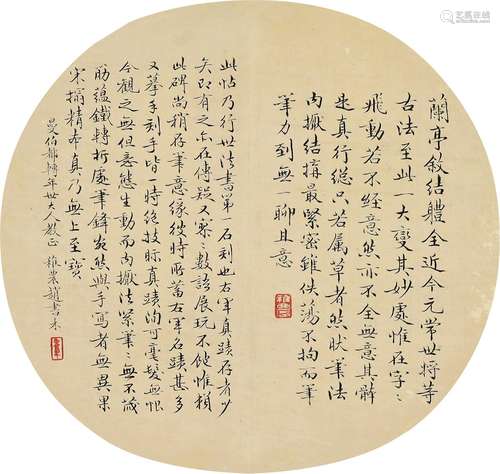 蘭亭敘結體全近今元常世將等
古法至此一大變其妙處惟在字〻
飛動若不經意然亦不全無意其髒
是真行總只若屬草者然狀筆法
內擫結搆最緊密雖佚蕩不拘而筆
筆力到無一聊且意
此帖乃行世法書第一石刻也右軍真蹟存者少
矣即有之亦在傳疑又寥〻數該展玩不使惟賴
此碑尚稍存筆意緣從時所蓄右軍石蹟甚多
又摹手刻手皆一時絕技眎真蹟洵可毫髮無恨
今觀之無但委態生動而內擫法緊筆〻無不藏
筋蘊鐵轉折處筆鋒宛然與手寫者無異果
宋搨精本真乃無上至寶
曼伯都轉年世大人教正 稚農趙書禾